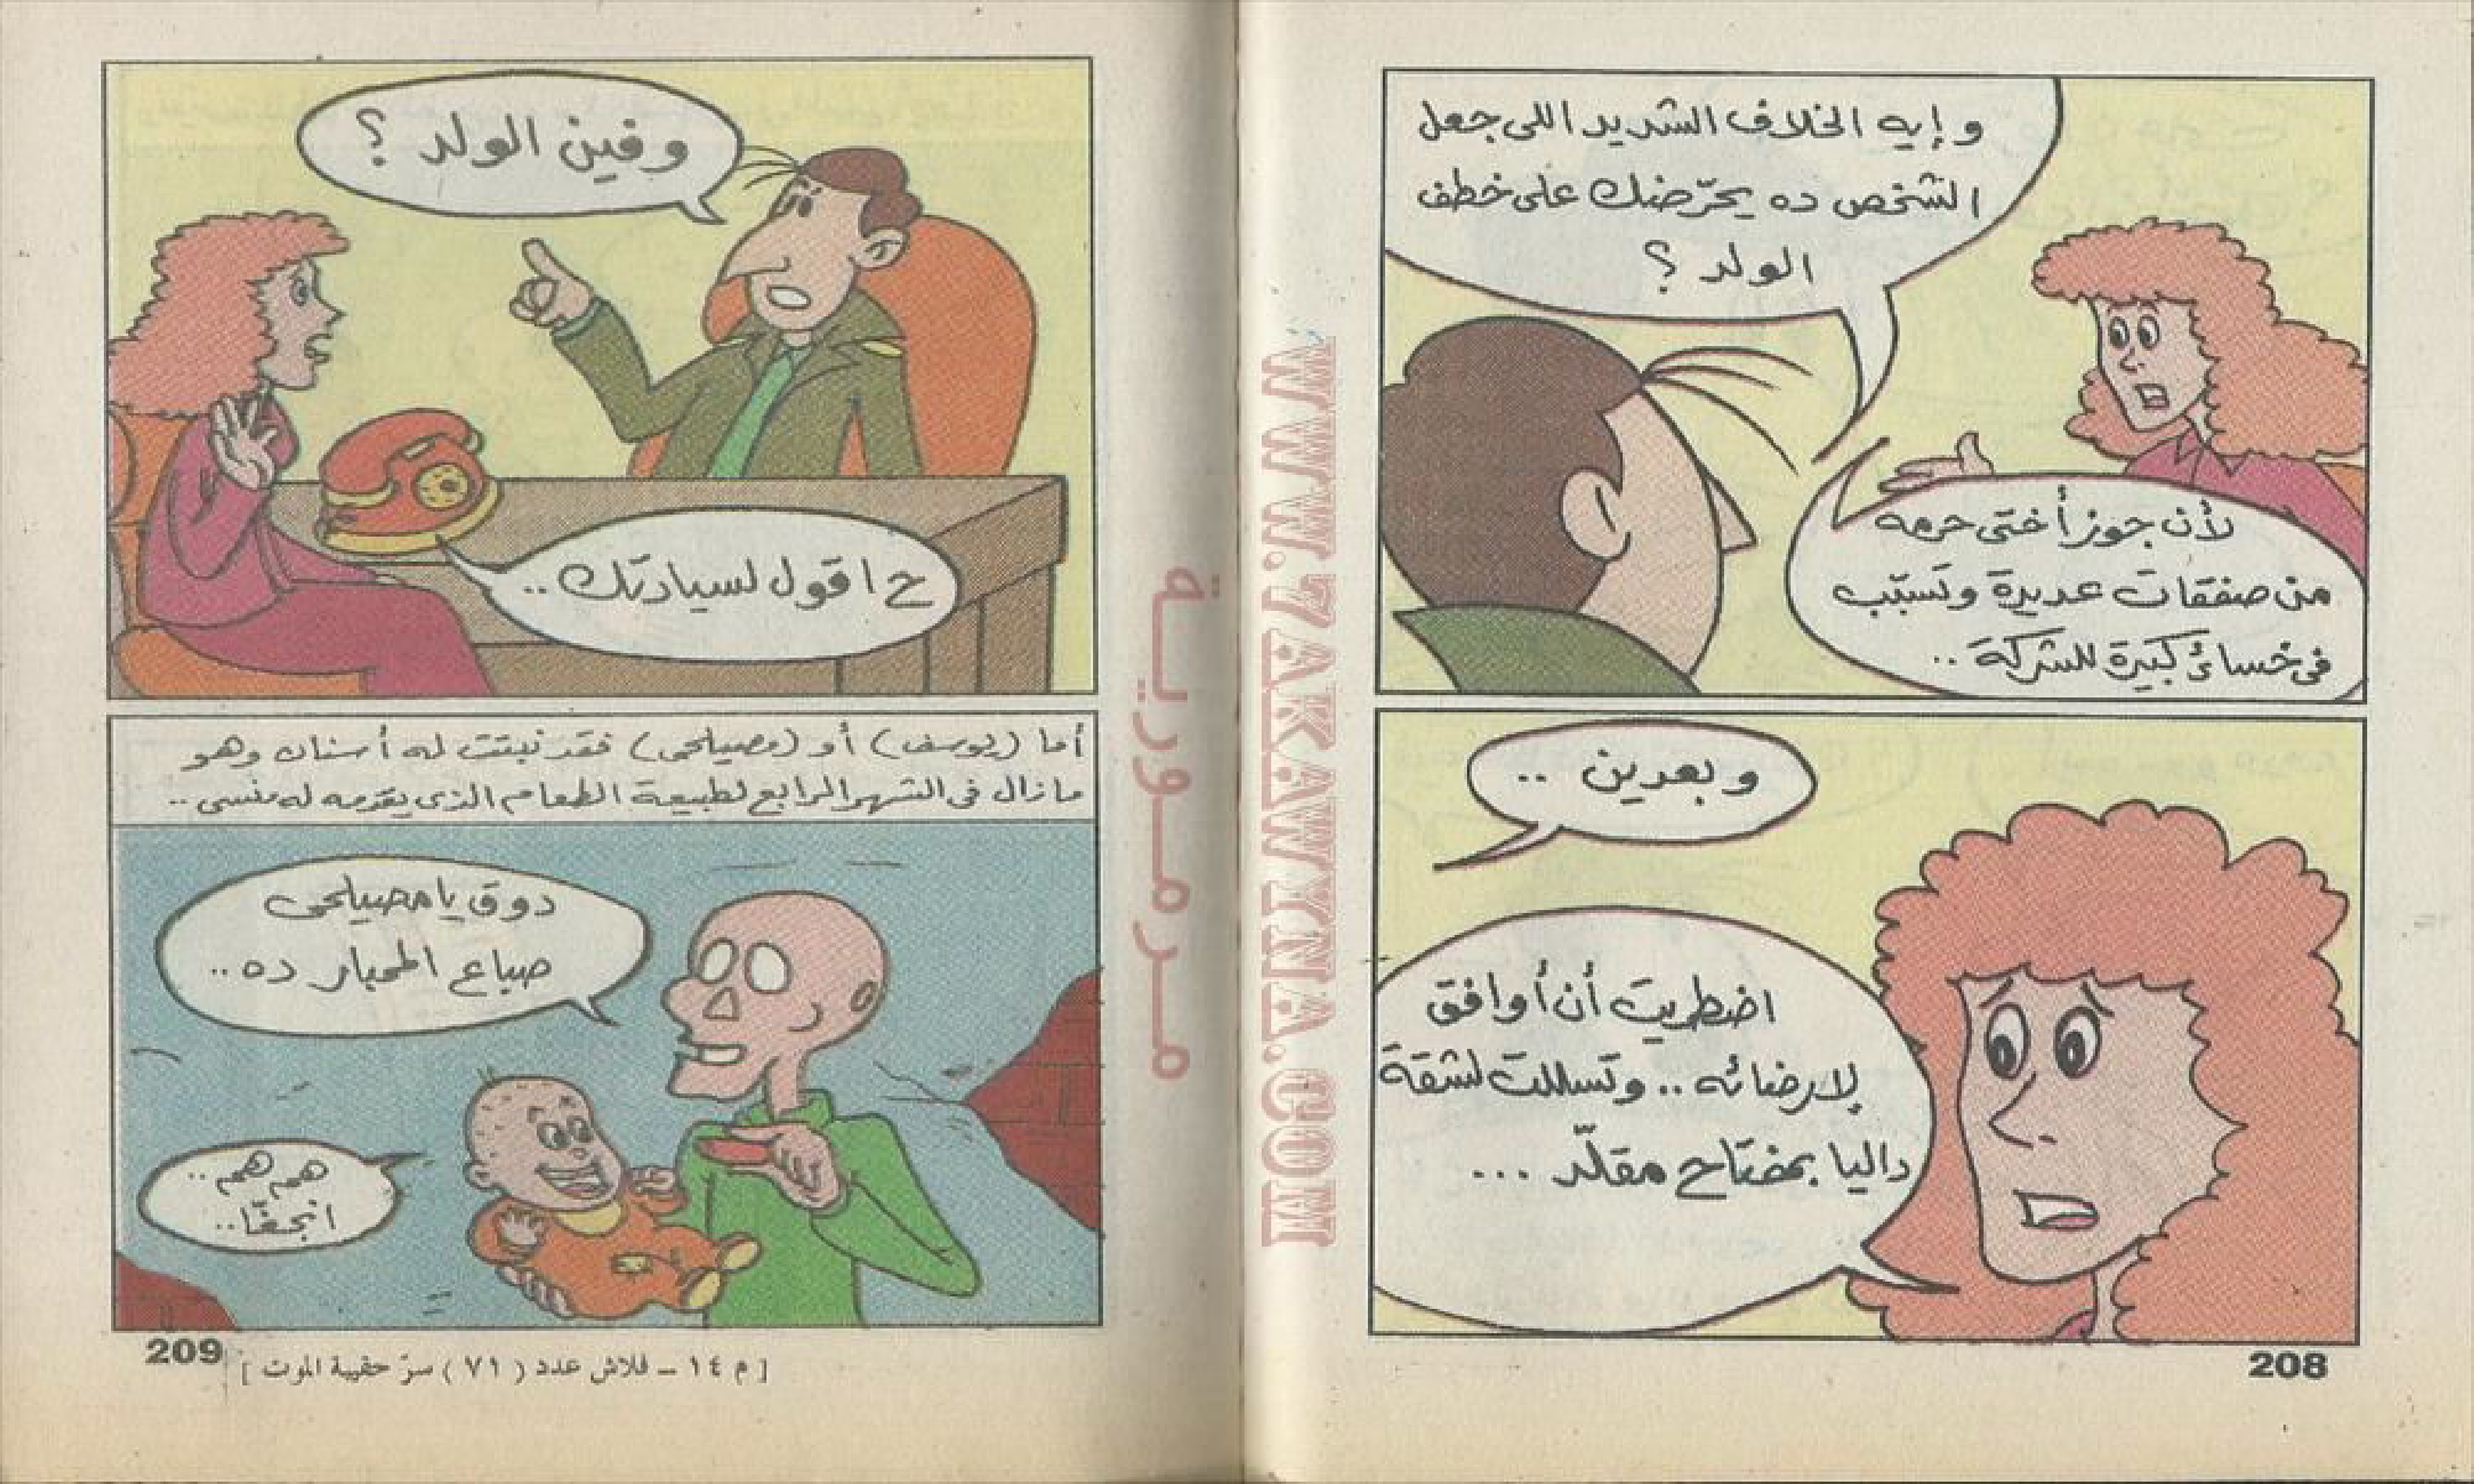 و إيه الخلاف الشديد اللى جعل
الشخص ده يحرّضك على خطف
الولد ؟
لأن جوز أختى حرمه
من صفقات عديدة وتسبّب
فى خسائر كبيرة للشركة ..
و بعدين ..
اضطريت أن أوافق
لإرضائه .. وتسللت لشقة
داليا بمفتاح مقلّد ...
208
و فين الولد ؟
ح اقول لسيادتك ..
أما (يوسف) أو (مصيلحى) فقد نبتت له أسنان وهو
مازال فى الشهر الرابع لطبيعة الطعام الذى يقدمه له منسى ..
دوق يا مصيلحى
صباع الممبار ده ..
همم همم ..
انجغّا ..
209
[ م ١٤ ــ فلاش عدد ( ٧١ ) سرّ حقيبة الموت ]
مرمورية
WWW.7AKAWYNA.COM